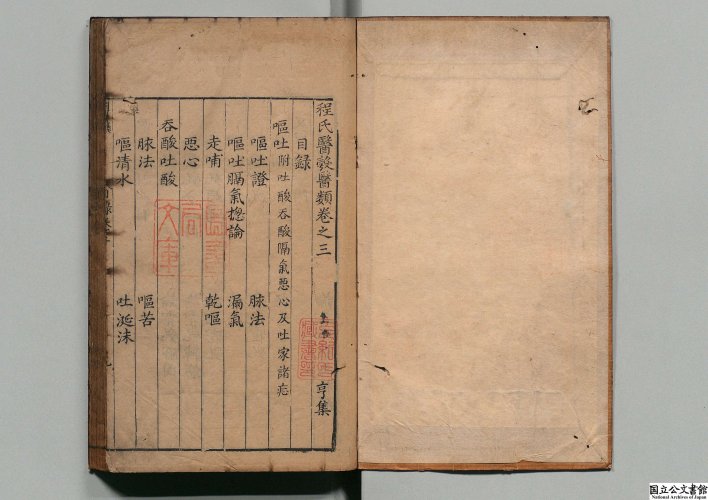 程氏醫彀醫類卷之三
亨集
目録
嘔吐附吐酸吞酸隔氣惡心及吐家諸症
嘔吐證 脉法
嘔吐膈氣總論 漏氣
走哺 乾嘔
惡心
吞酸吐酸
脉法 嘔苦
嘔清水 吐涎沫
國立公文書館
National Archives of Japan